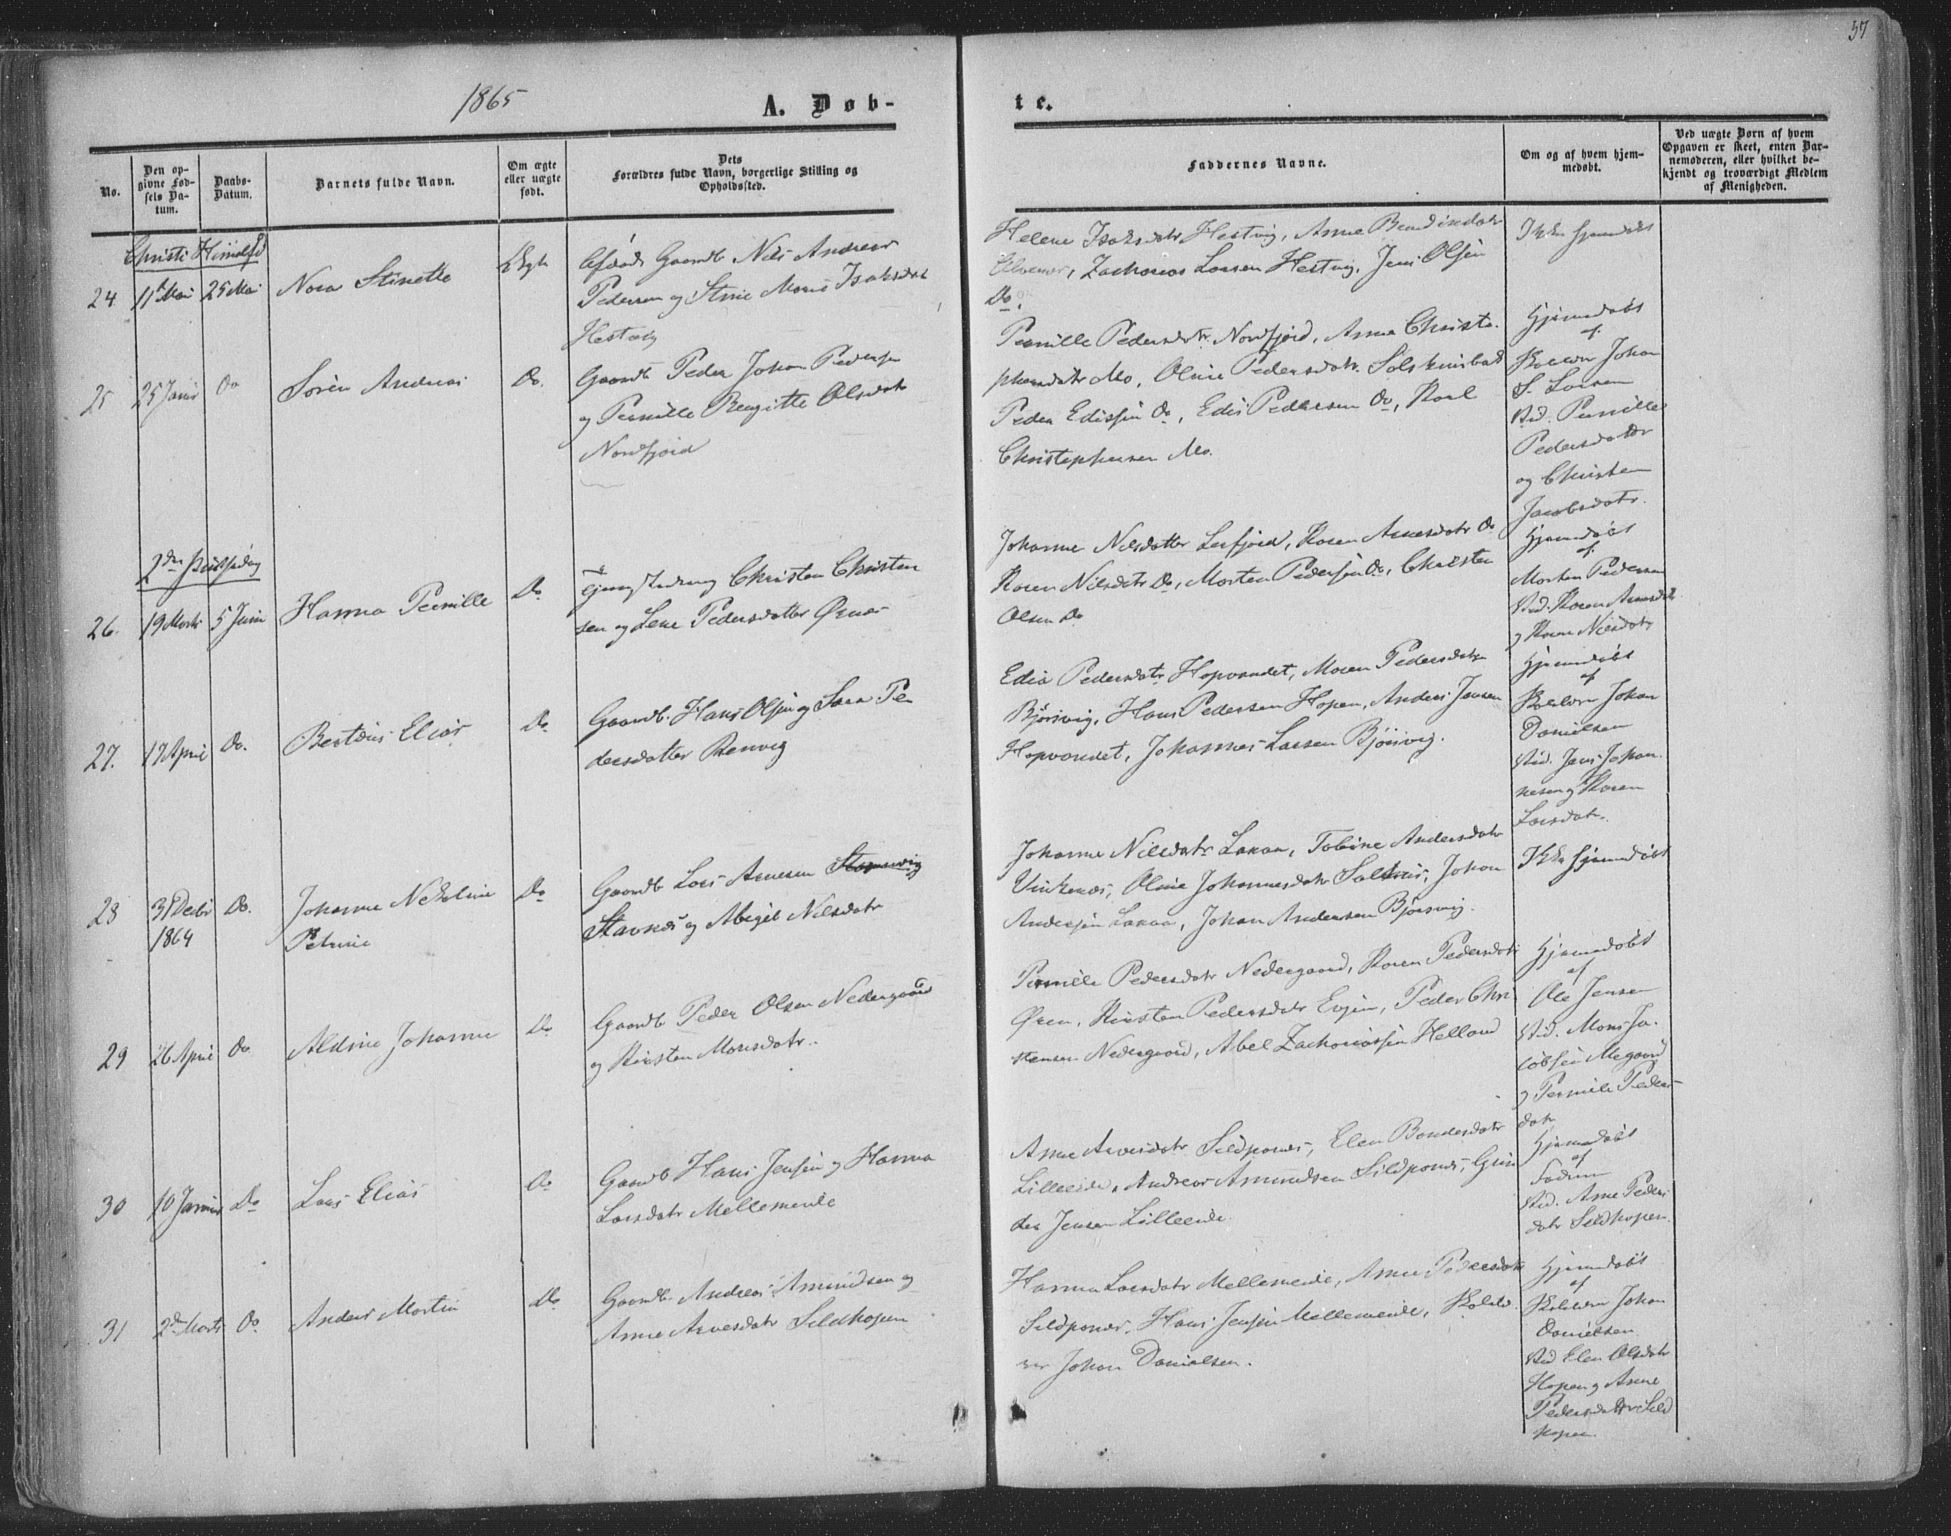 57
1865
A. Døb-
te.
No.
Den op-
givne Fød-
sels Da-
tum.
Daabs-
Datum.
Barnets fulde Navn.
Om ægte
eller uægte
født.
Dets
Forældres fulde Navn, borgerlige Stilling og
Opholdssted.
Faddernes Navne.
Om og af hvem hjem-
medøbt.
Ved uægte Børn af hvem
Opgaven er skeet, enten Bar-
nemoderen, eller hvilket be-
kjendt og troværdigt Medlem
af Menigheden.
Christi Himmelfd
24
11te Mai
25 Mai
Nora Stinette
Ægte
Gaardb Nils Andreas
Pedersen og Stine Isaksdat
Hestvig
Helene Isaksdatr Hestvig, Anne
Zacharias Larsen Hestvig, Jens Olsen
Do.
Ikke hjemdøbt
25
25 Janr
Do
Sørin Andreas
Do.
Gaardb Peder Johan Pedersen
og Pernille Bergitte Olsdatr
Nordfjord
Pernille Pedersdatr Nordfjord, Anna Christo-
phersdatr Mo, Oline Pedersdatr Solskinsbak
Peder Edissen Do, Edis Pedersen Do, Karl
Christophersen Mo.
Hjemdøbt
af
Skolelr Johan
S. Larsen
Vid. Pernille
Pedersdatter
og Christen
Jacobsdatr.
2den Pintsedag
26.
19 Marts
5 Juni
Hanna Pernille
Do
Christen Christen
sen og Lene Pedersdatter Ørnæs
Johanna Nilsdatter Leirfjord, Karen Arnesdatr Do
Karen Nilsdatr Do, Morten Pedersen Do, Christen
Olsen Do
Hjemdøbt
af
Morten Pedersen
Vid. Karen Arnesdatr
og Karen Nilsdatr
27.
17 April
Do.
Berteus Elias
Do
Gaardb. Hans Olsen og Sara Pe
dersdatter Renvig
Edia Pedersdatr Hopvandet, Maren Pedersdatr
Bjørsvig, Hans Pedersen Hopen, Anders Jensen
Hopvandet, Johannes Larsen Bjørsvig.
Hjemdøbt
af
Skolelr Johan
Danielsen
Vid. Jens Johan-
nesen og Karen
Larsdatr.
28
31 Decbr
1864
Do.
Johanne Nekoline
Petrine
Do
Gaardb Lars Arnesen
Stavnæs og Abigel Nilsdatr
Johanna Nilsdatr Lakaa, Tobine Andersdatr
Vinkenæs, Oline Johannesdatr Saltnæs, Johan
Andersen Lakaa, Johan Andersen Bjørsvig.
Ikke hjemdøbt
29
26 April
Do
Aldine Johanna
Do
Gaardb Peder Olsen Nedergaard
og Kirsten Monsdatr.
Pernille Pedersdatr Nedergaard, Karen Pedersdatr
Øren, Kirsten Pedersdatr Evjen, Peder Chri
stensen Nedergaard, Abel Zachariassen Helland
Hjemdøbt
af
Ole Jensen
Vid. Mons Ja-
cobsen Megaard
og Pernille Peders-
datr
30
10 Januar
Do
Lars Elias
Do
Gaardb Hans Jensen og Hanna
Larsdatr Mellemeide
Anne Arvesdatr Sildpones, Elen Bendesdatr
Lilleeide, Andreas Amundsen Sildpones, Gun
der Jensen Lilleeide
Hjemdøbt
af
Vid. Anne Peders
datr Sildhopen
31
2den Marts
Do
Anders Martin
Do
Gaardb. Andreas Amundsen og
Anne Arvesdatr Sildhopen
Hanna Larsdatr Mellemeide, Anne Pedersdatr
Sildpones, Hans Jensen Mellemeide, Skolelæ-
rer Johan Danielsen.
Hjemdøbt
af
Skolelr Johan
Danielsen
Vid Elen Olsdatr
Hopen og Anne
Pedersdatter Sild
hopen